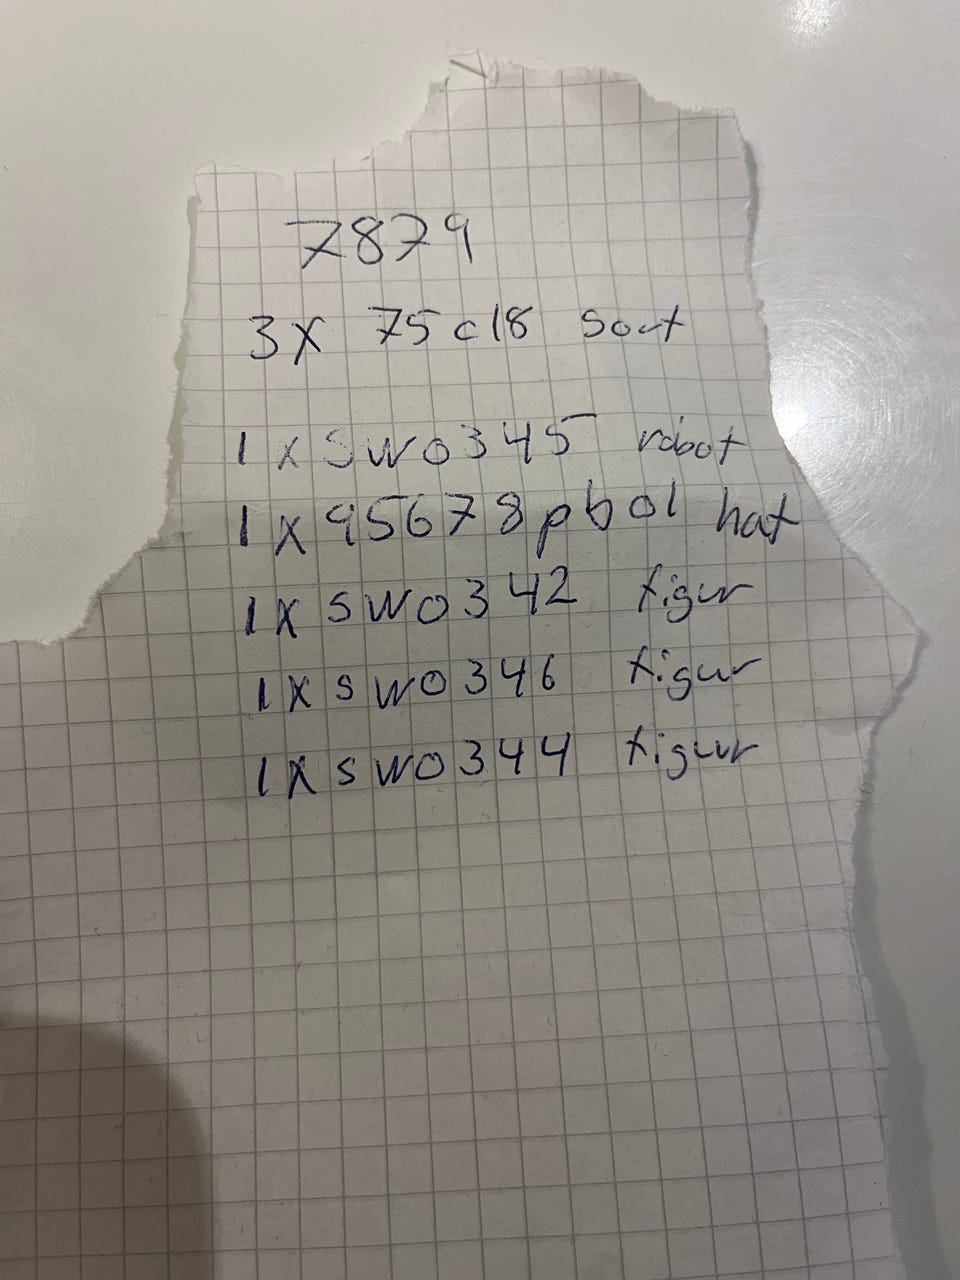 7879
3x 75c18 sort
1x sw0345 robot
1x95678pb01 hat
1x sw0342 figur
1x sw0346 figur
1x sw0344 figur